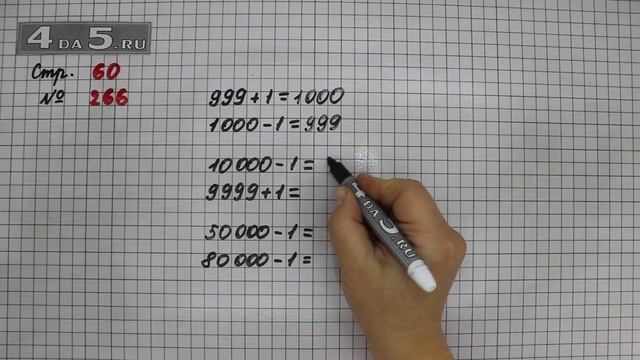 4 DA 5.RU
Стр. 60
№ 266
999+1=1000
1000-1=999
10 000-1=
9999+1=
50 000-1=
80 000-1=
4 DA 5.RU